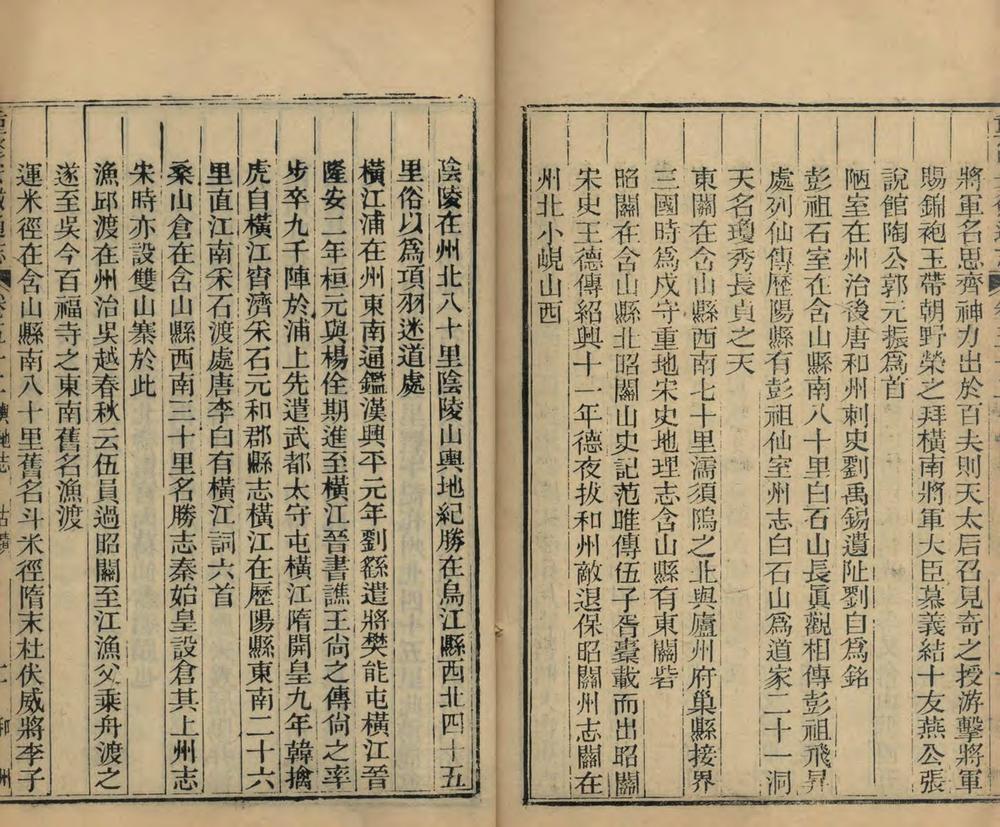 將軍名思齊神力出於百夫則天太后召見奇之授游擊將軍
賜錦袍玉帶朝野榮之拜橫南將軍大臣慕義結十友燕公張
說館陶公郭元振爲首
陋室在州治後唐和州刺史劉禹錫遺阯劉自爲銘
彭祖石室在含山縣南八十里白石山長眞觀相傳彭祖飛昇
處列仙傳歷陽縣有彭祖仙室州志白石山爲道家二十一洞
天名瓊秀長貞之天
東關在含山縣西南七十里濡須隖之北與廬州府巢縣接界
三國時爲戍守重地宋史地理志含山縣有東關砦
昭關在含山縣北昭關山史記范雎傳伍子胥橐載而出昭關
宋史王德傳紹興十一年德夜拔和州敵退保昭關州志關在
州北小峴山西
陰陵在州北八十里陰陵山輿地紀勝在烏江縣西北四十五
里俗以爲項羽迷道處
橫江浦在州東南通鑑漢興平元年劉繇遣將樊能屯橫江晉
隆安二年桓元與楊佺期進至橫江晉書譙王尙之傳尙之率
步卒九千陣於浦上先遣武都太守屯橫江隋開皇九年韓擒
虎自橫江宵濟采石元和郡縣志橫江在歷陽縣東南二十六
里直江南采石渡處唐李白有橫江詞六首
桑山倉在含山縣西南三十里名勝志秦始皇設倉其上州志
宋時亦設雙山寨於此
漁邱渡在州治吳越春秋云伍員過昭關至江漁父乘舟渡之
遂至吳今百福寺之東南舊名漁渡
運米徑在含山縣南八十里舊名斗米徑隋末杜伏威將李子
輿地志 古蹟 和州